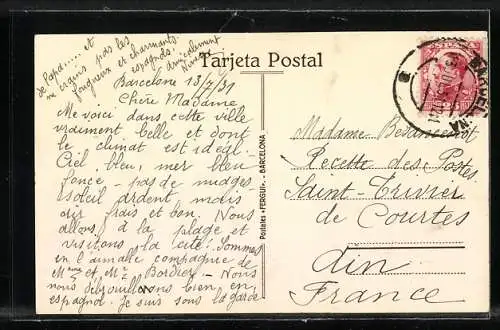 de Papa..... et
ne crains pas les
fougueux et charmants
espagnols.
amicalement
Tarjeta Postal
Barcelone 13/7/31
Chère Madame
Me voici dans cette ville
vraiment belle et dont
le climat est idéal.
Ciel bleu, mer bleu
foncé - pas de nuages
soleil ardent mais
air frais et bon. Nous
allons à la plage et
visitons la cité. Sommes
en l'aimable compagnie de
Mme et Mr Bordier - Nous
nous débrouillons bien en
espagnol. Je suis sous la garde
Postales «FERGUI».-BARCELONA
ESPAÑA
25
BARCELONA
Madame Besancenot
Recette des Postes
Saint-Trivier
de Courtes
Ain
France